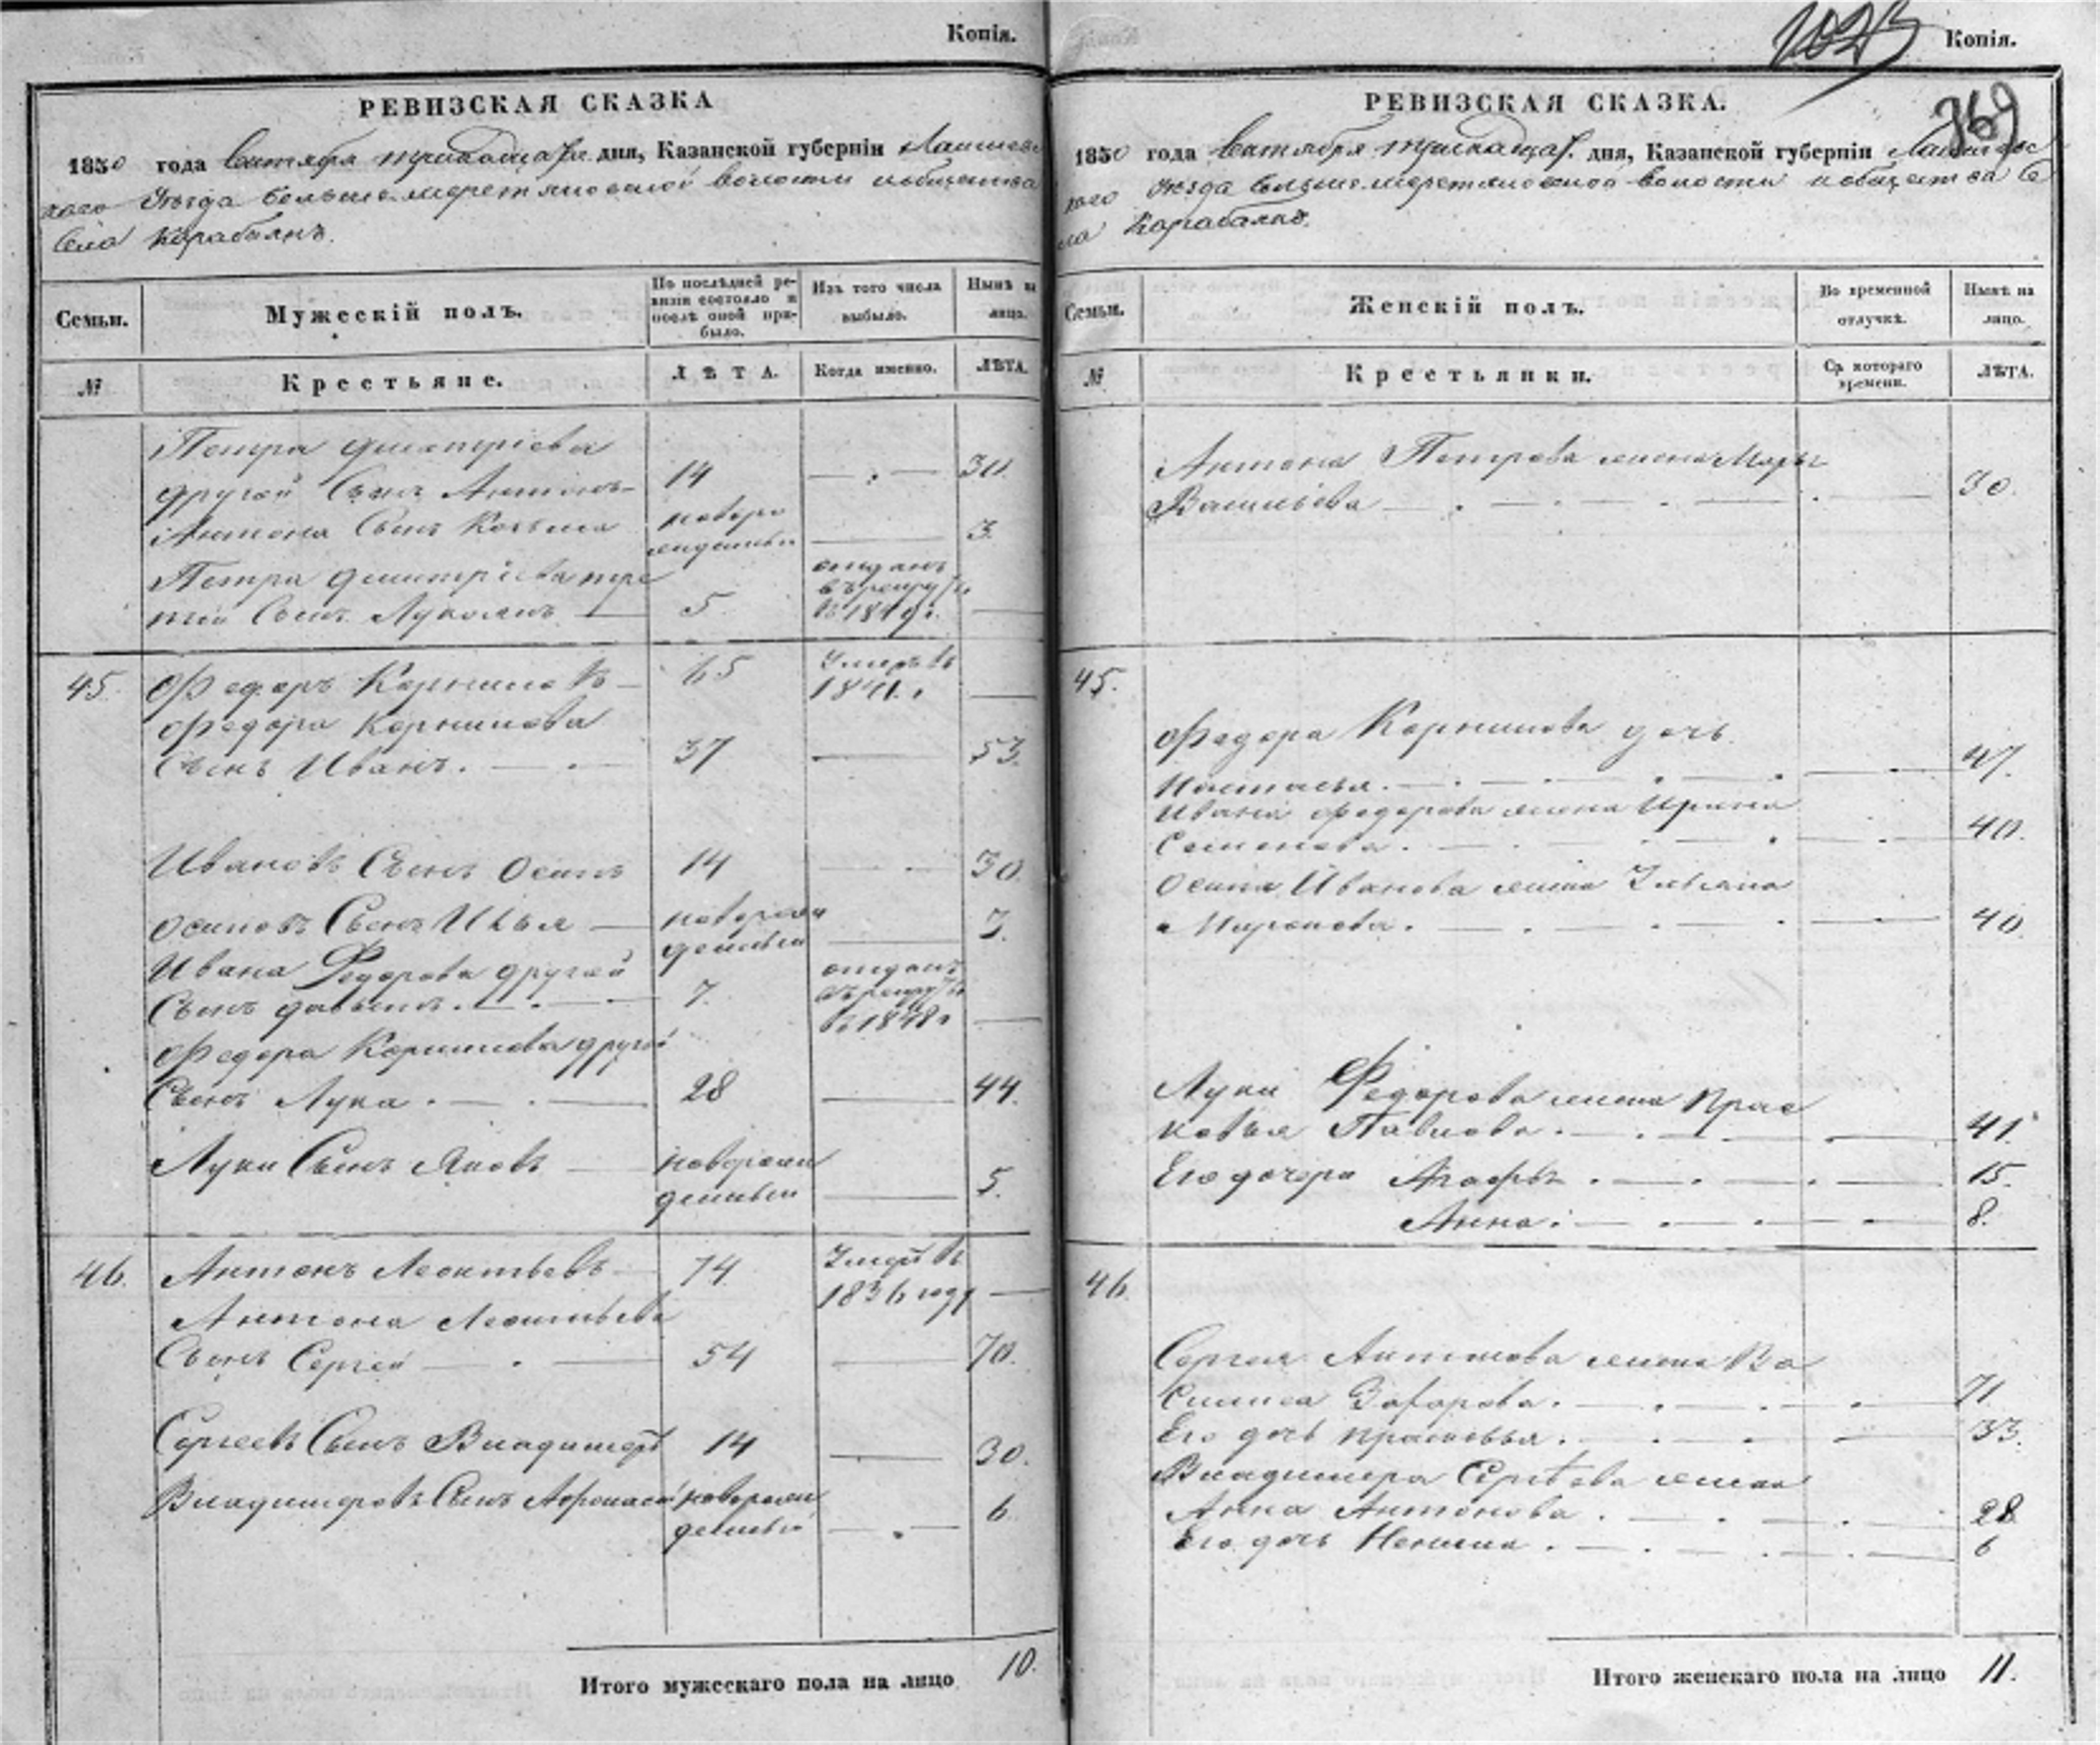 Копія.
РЕВИЗСКАЯ СКАЗКА
1850 года Октября тридцатаго дня, Казанской губерніи Лаишевс
каго Уѣзда больше меретяковской волости и общества
Села Карабаянъ.
Семьи. Мужескій полъ. По послѣдней ревизіи состояло и послѣ оной прибыло. Изъ того числа выбыло. Нынѣ на лицо.
№ Крестьяне. ЛѢТА. Когда именно. ЛѢТА.
Петра Дмитріева
другой Сынъ Антонъ 14 30.
Антона Сынъ Козьма новоро
жденный 3.
Петра Дмитріева тре
тій Сынъ Лукоянъ 5 отданъ въ рекруты въ 1849 г.
45. Федоръ Корниловъ 65 Умеръ въ 1841. г.
Федора Корнилова
Сынъ Иванъ. 37 53.
Ивановъ Сынъ Осипъ 14 30.
Осиповъ Сынъ Илья новорож
денный 3.
Ивана Федорова другой
Сынъ 7. отданъ въ рекруты въ 1848 г.
Федора Корнилова другой
Сынъ Лука. 28 44.
Луки Сынъ Яковъ новорож
денный 5.
46. Антонъ Леонтьевъ 74 Умеръ въ 1836 году
Антона Леонтьева
Сынъ Сергей 54 70.
Сергеевъ Сынъ Владимеръ 14 30.
Владимеровъ Сынъ Афонасей новорож
денный 6
Итого мужескаго пола на лицо 10.
Копія.
369
РЕВИЗСКАЯ СКАЗКА.
1850 года Октября тридцатаго дня, Казанской губерніи Лаишевс
каго Уѣзда больше меретяковской волости и общества Се
ла Карабаянъ.
Семьи. Женскій полъ. Во временной отлучкѣ. Нынѣ на лицо.
№ Крестьянки. Съ котораго времени. ЛѢТА.
Антона Петрова жена Марья
Васильева 30.
45.
Федора Корнилова дочь
Настасья. 47.
Ивана Федорова жена Ирина
Семенова. 40.
Осипа Иванова жена Ульяна
Миронова. 40
Луки Федорова жена Прас
ковья Павлова. 41.
Его дочери 15.
Анна. 8.
46.
Сергея Антонова жена Ва
силиса Захарова. 71.
Его дочь Прасковья. 33.
Владимера Сергѣева жена
Анна Антонова. 28
Его дочь 6
Итого женскаго пола на лицо 11.